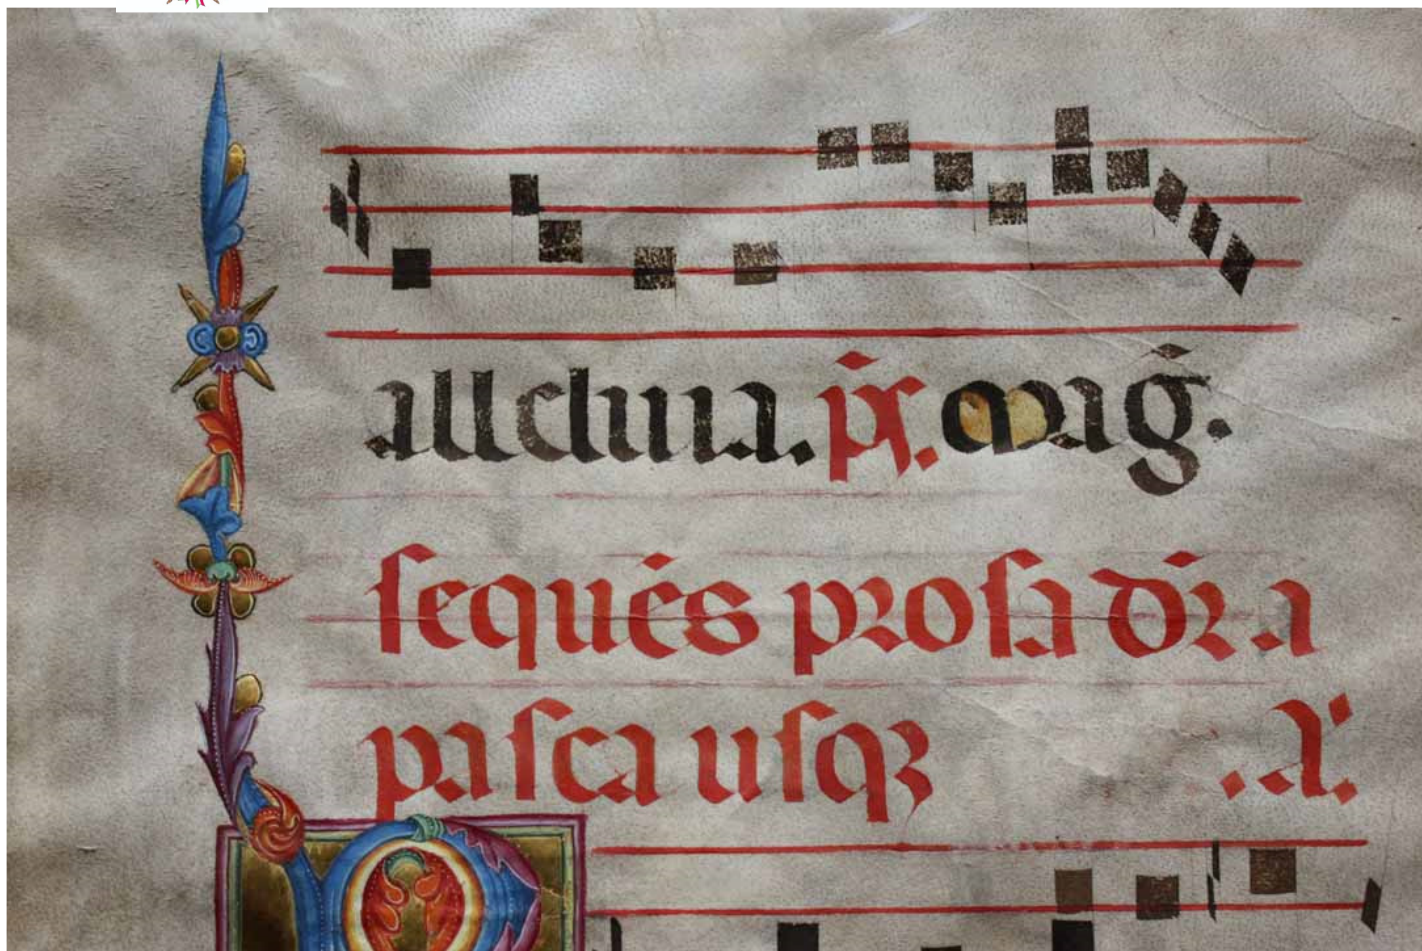 alleluia. ps. mag̅.
sequēs prosa dn̅ica
pasca usqꝫ .a.